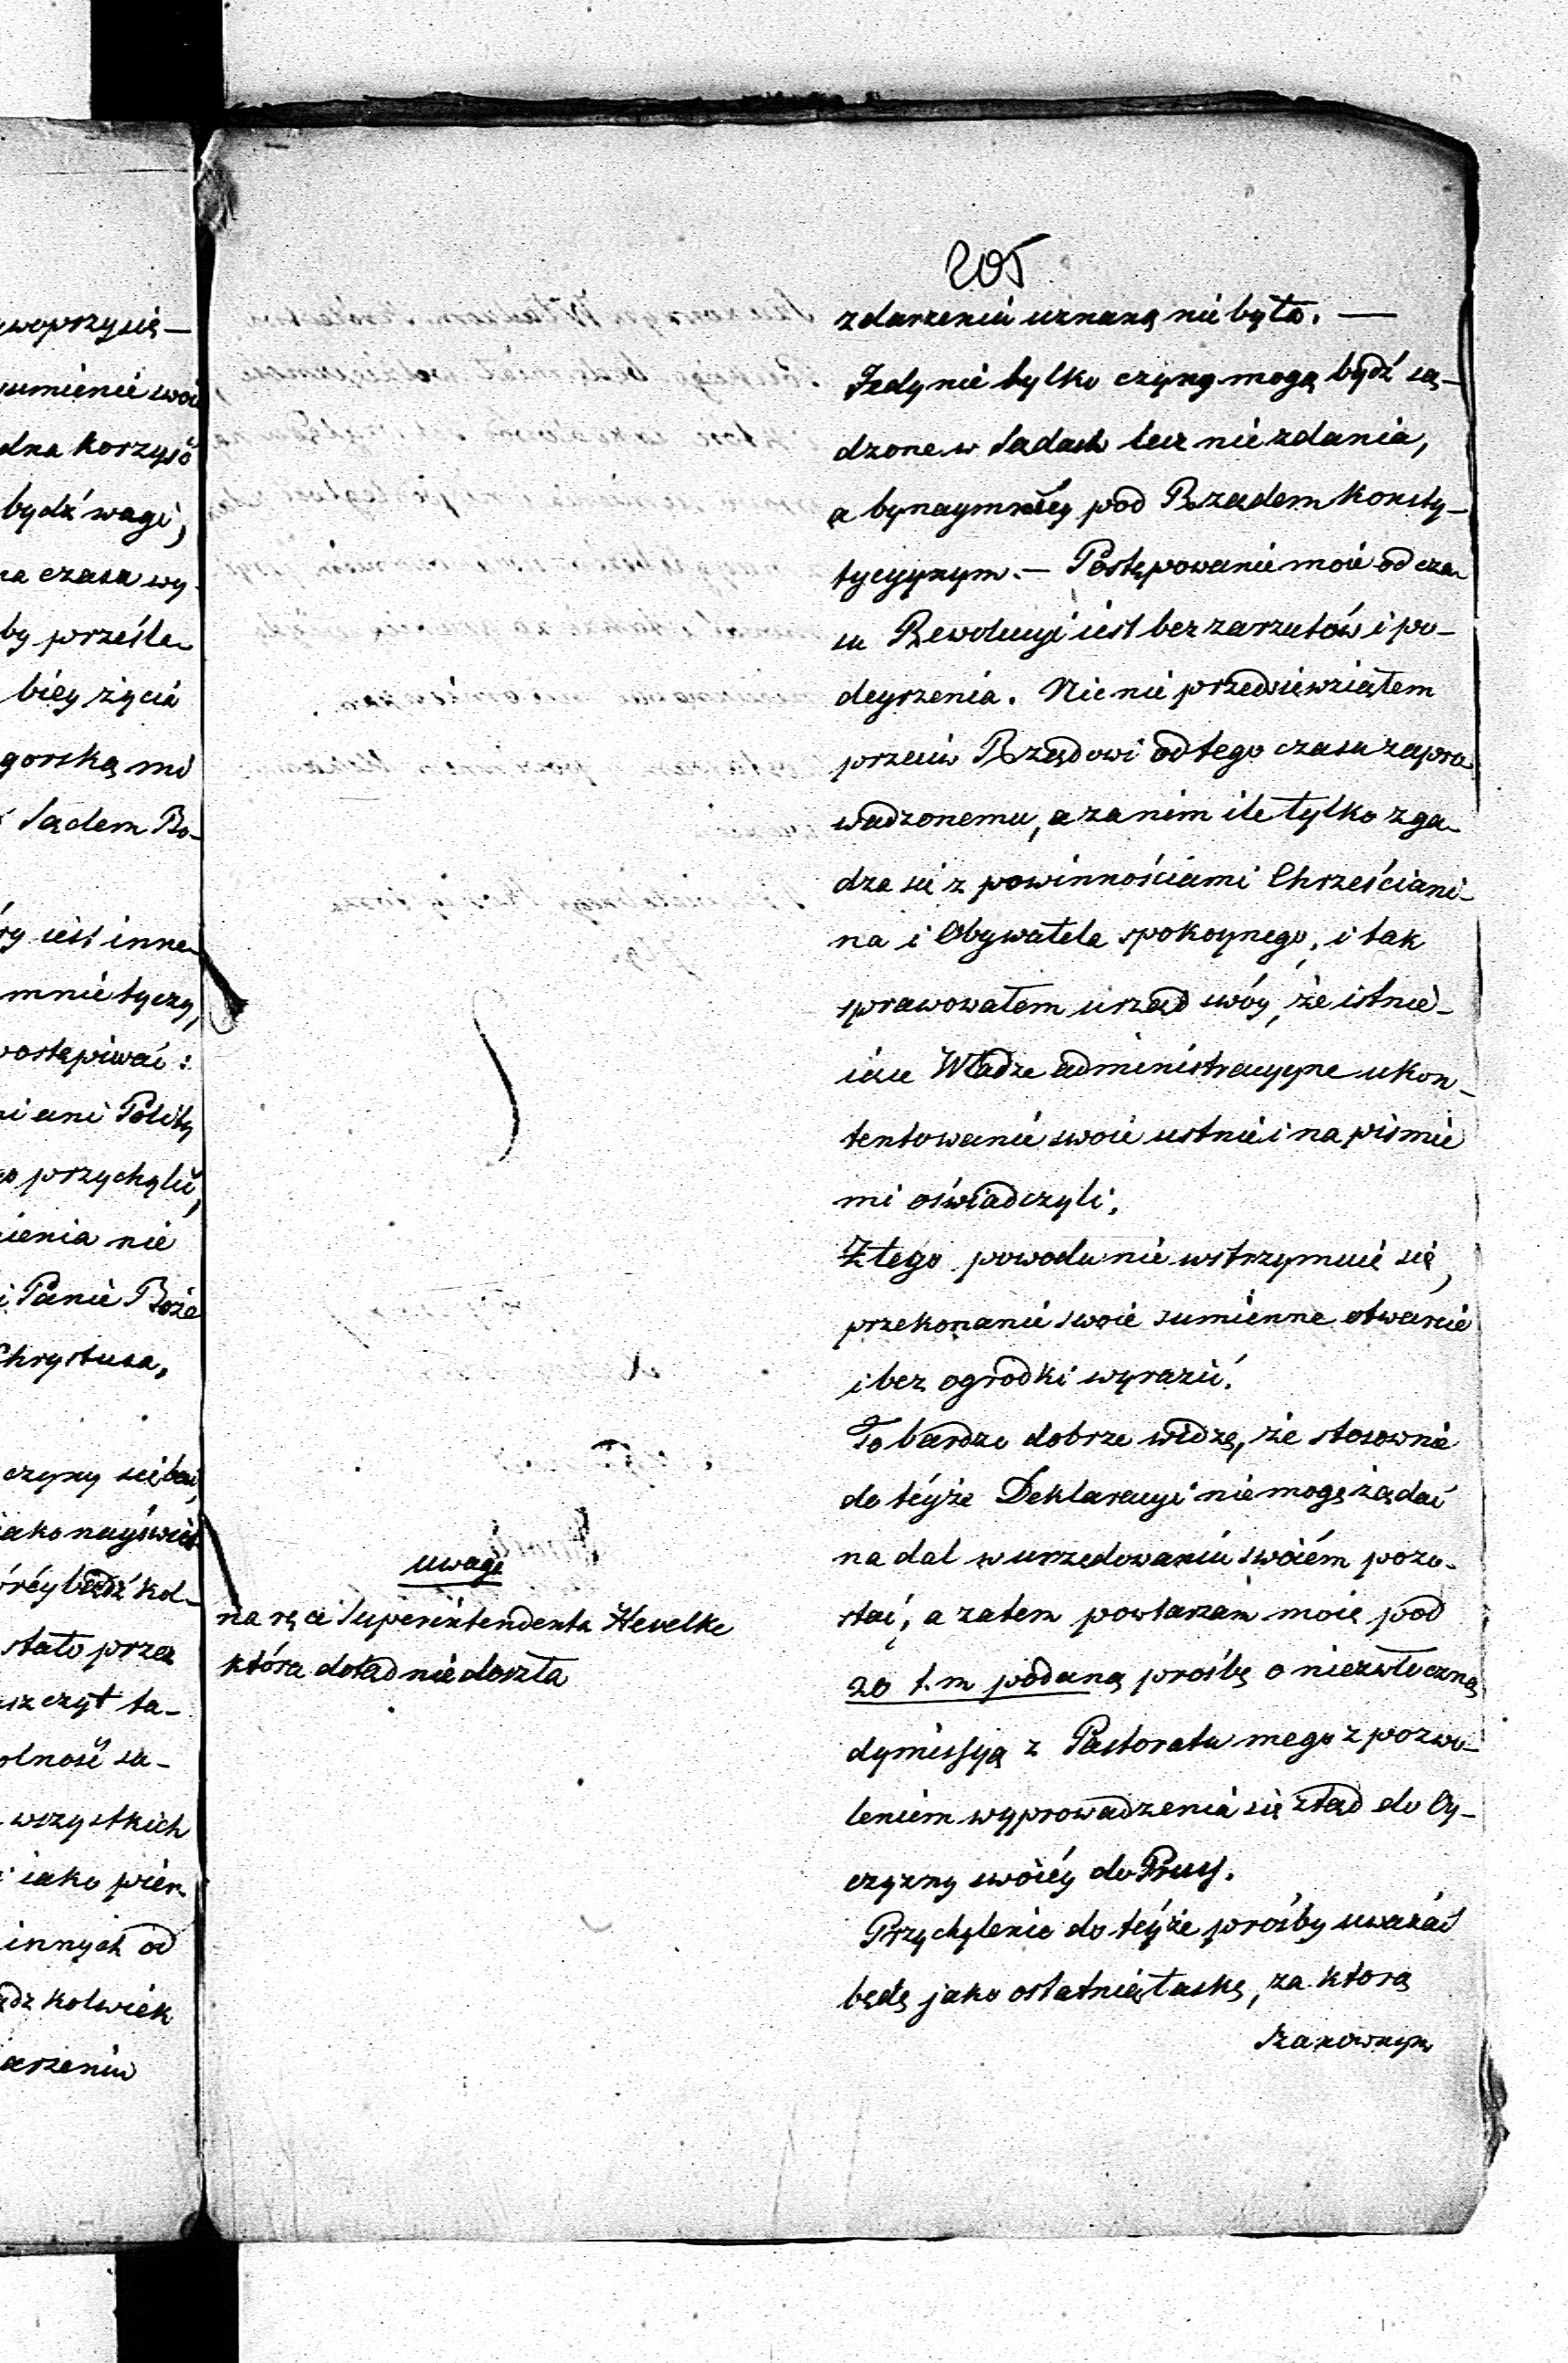 woprzysię—
sumienie swoie
dna korzyść
bydź wagi,
na czasu wy-
by prześla-
biey życia
gorską mi
Sądem Bo-
ry iest inne-
mnie tyczy,
postępiwać:
ni ani Polity
o przychylić,
ienia nie
i Panie Boże
Chrystusa,
czyny sie bać
iako nayświęt
óréy bądź kol-
stało przez
szczyt ta-
olność sa-
wszystkich
iako pier-
innych od
ądz kolwiek
arzeniu
205
zdarzeniu uznaną nie było. —
Jedynie tylko czyny mogą bydź są-
dzone w Sądach lecz nie zdania,
a bynaymniéy pod Rządem Konsty-
tycyynym. — Postępowanie moie od cza-
su Rewolucyi iest bez zarzutów i po-
deyrzenia. Nic nie przedsiewziąłem
przeciw Rządowi od tego czasu zapro-
wadzonemu, a za nim ile tylko zga-
dza sie z powinnościami Chrześciani-
na i Obywatela spokoynego, i tak
sprawowałem urząd swóy, że istnie-
iące Władze administracyyne ukon-
tentowanie swoie ustnie i na piśmie
mi oświadczyli.
Z tego powodu nie wstrzymuię się,
przekonanie swoie sumienne otwarcie
i bez ogrodki wyrazić.
To bardzo dobrze widzę, że stosownie
do téyże Deklaracyi nie mogę żądać
na dal w urzędowaniu swoiém pozo-
stać, a zatem powtarzam moię pod
20 t. m podaną prośbę o niezwłoczną
dymissyą z Pastoratu mego z pozwo-
leniem wyprowadzenia się ztąd do Oy-
czyzny swoiéy do Pruss.
Przychylenie do téyże prośby uważać
będę jako ostatnią łaskę, za ktorą
Szanownym
uwaga
na ręce Superintendenta Hevelke
która dotąd nie doszła